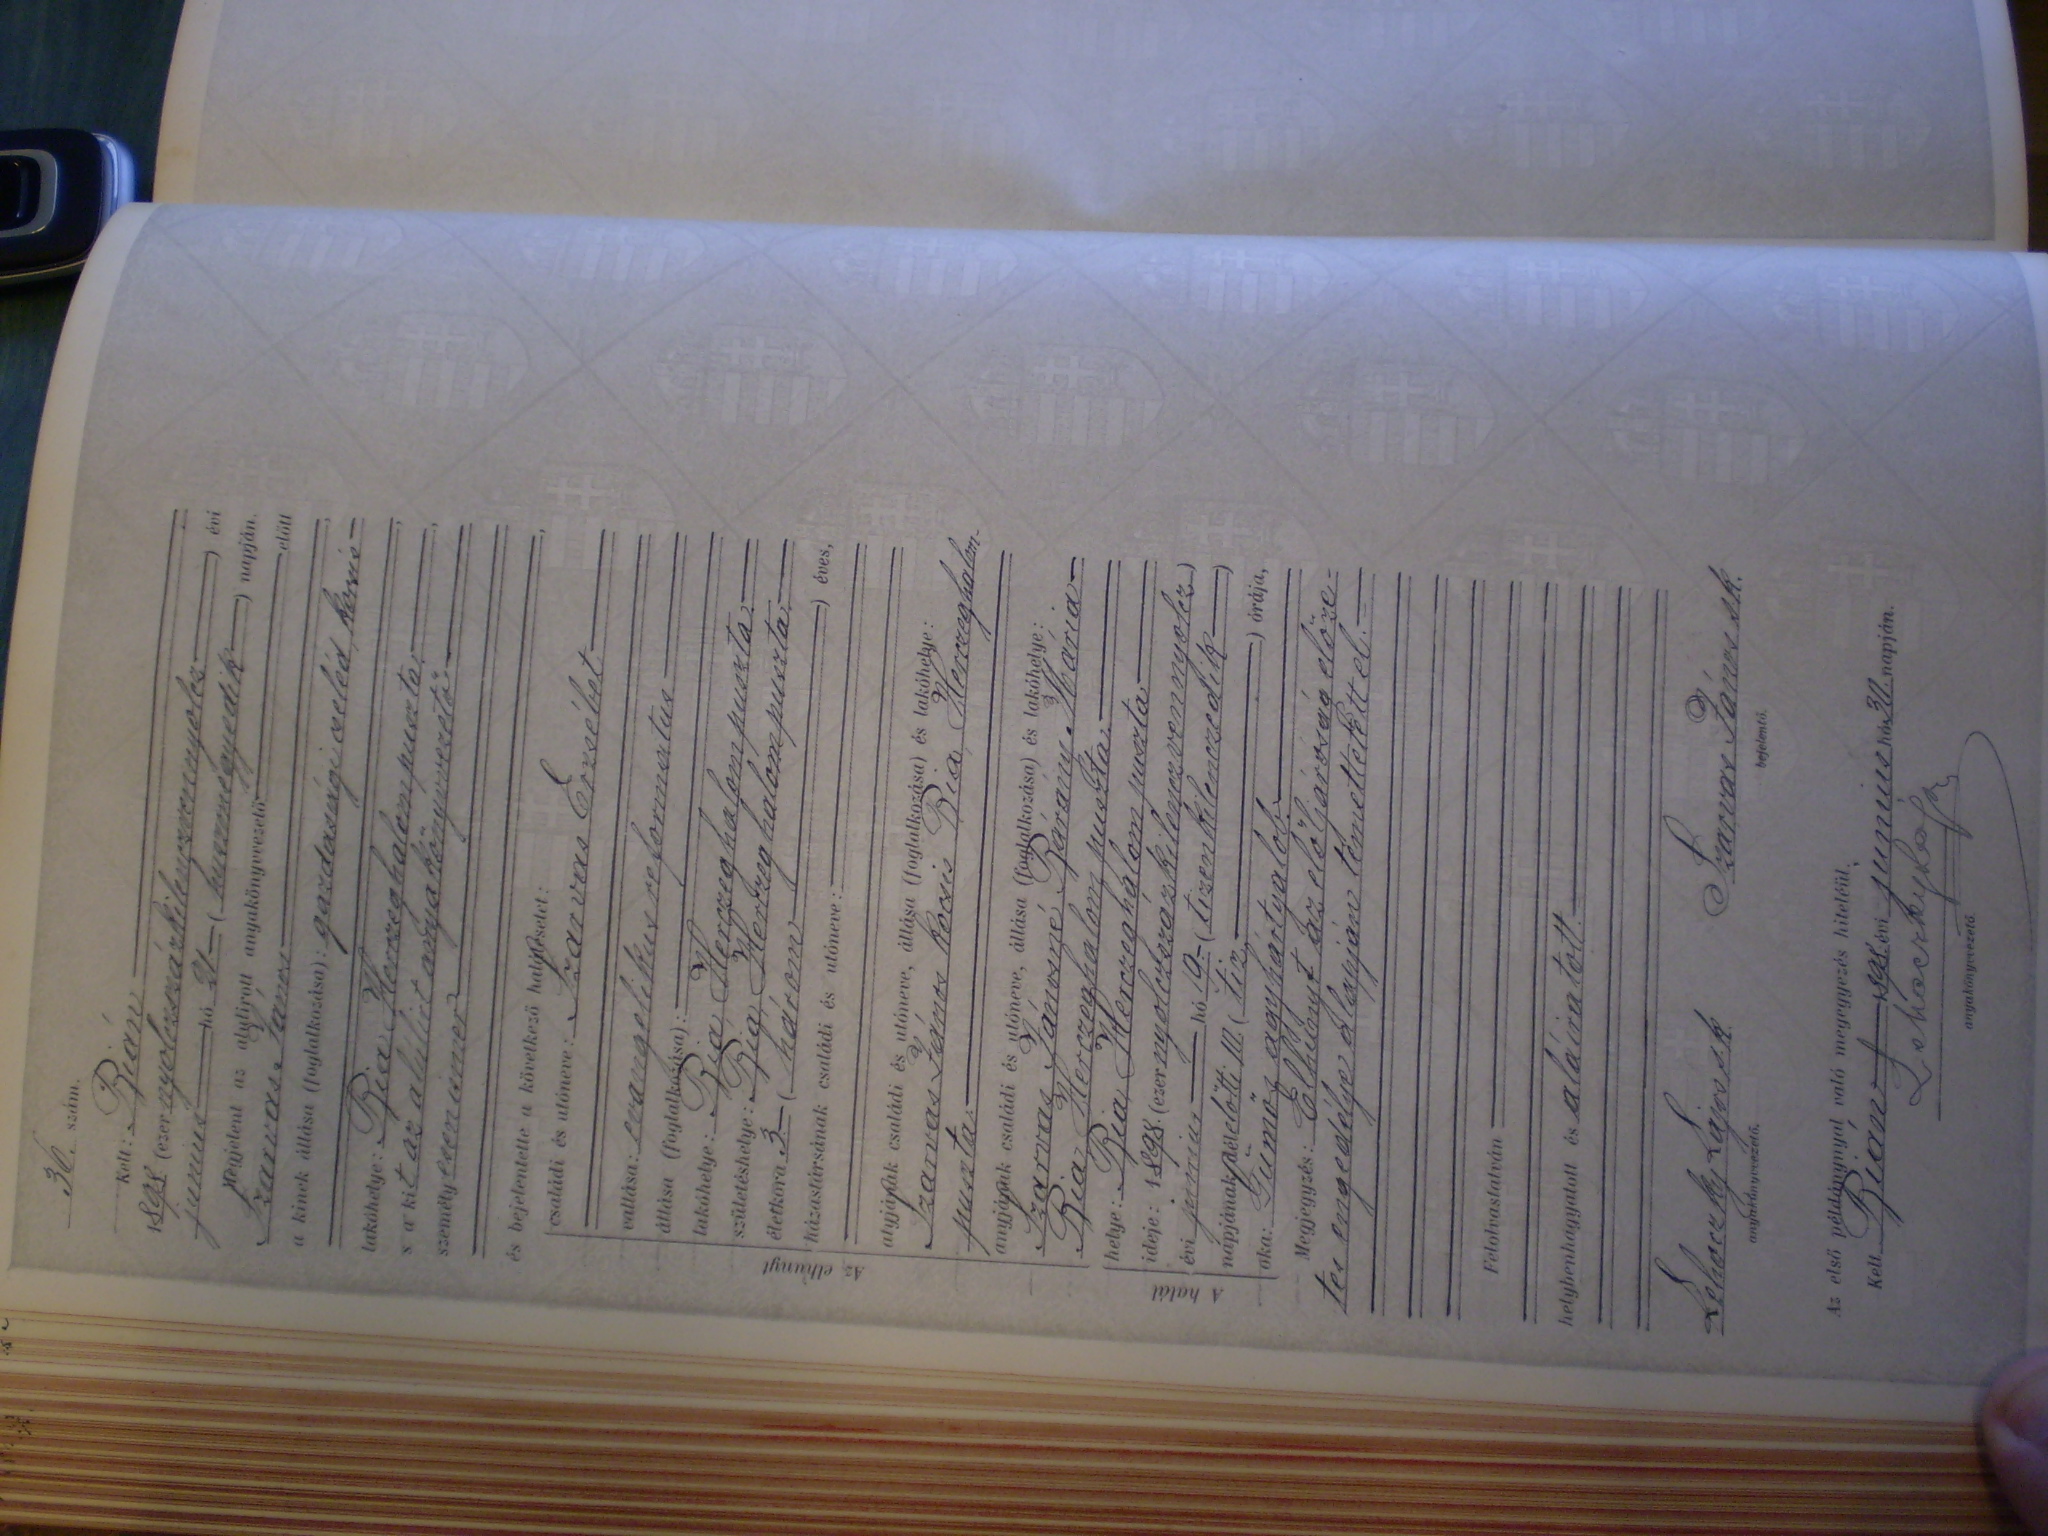 36. szám.
Kelt: Bián
1898 (ezer nyolczszázkilenczvennyolcz) évi
junius hó 21 (huszonegyedik) napján.
Megjelent az alulirott anyakönyvezető előtt
Szarvas János
a kinek állása (foglalkozása): gazdasági cseléd, kocsis,
lakóhelye: Bia, Herczeghalompuszta,
s a kit az alulirt anyakönyvezető
személyesen ismer,
és bejelentette a következő halálesetet:
Az elhunyt
családi és utóneve: Szarvas Erzsébet
vallása: evangelikus reformatus
állása (foglalkozása):
lakóhelye: Bia, Herczeghalompuszta
születéshelye: Bia, Herczeghalompuszta
életkora 3 (három) éves,
házastársának családi és utóneve:
atyjának családi és utóneve, állása (foglalkozása) és lakóhelye:
Szarvas János kocsis Bia, Herczeghalom-
puszta
anyjának családi és utóneve, állása (foglalkozása) és lakóhelye:
Szarvas Jánosné Bárány Mária
Bia, Herczeghalompuszta
A halál
helye: Bia, Herczeghalompuszta
ideje: 1898 (ezernyolczszázkilenczvennyolcz)
évi junius hó 19 (tizenkilenczedik)
napjának délelőtti 10 (tiz) órája,
oka: Gümős agyhártyalob
Megjegyzés: Elhunyt az elöljáróság előze-
tes engedélye alapján temettetett el.
Felolvastatván
helybenhagyatott és aláiratott.
Lehoczky Lajos sk
anyakönyvezető.
Szarvas János sk.
bejelentő.
Az első példánynyal való megegyezés hiteléül,
Kelt Bián 1898 évi junius hó 30 napján.
Lehoczky Lajos
anyakönyvezető.